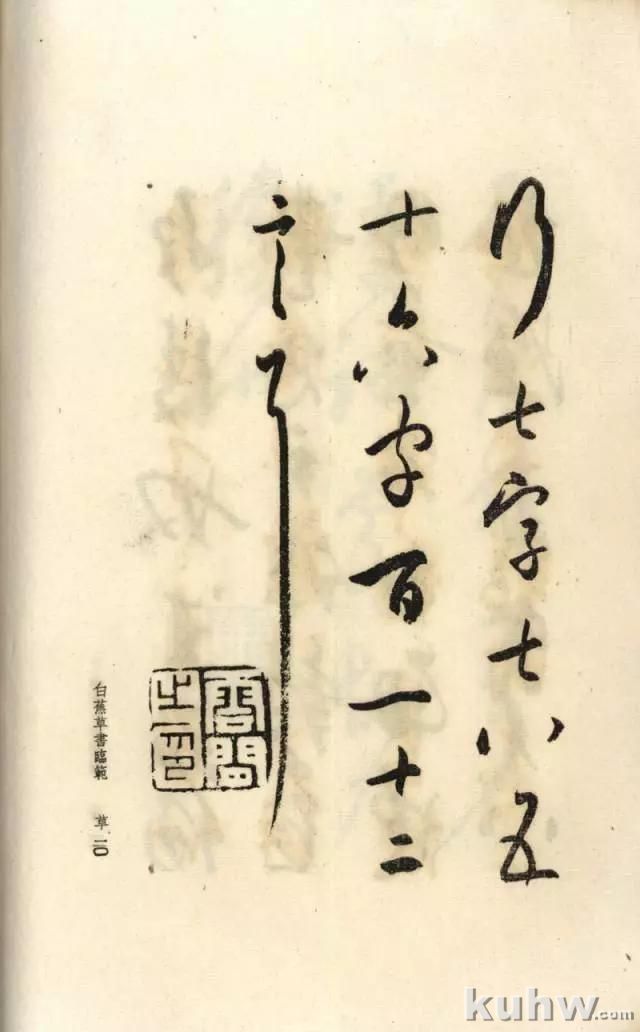 行七字七八五
十六字百一十二
言耳
白蕉草書臨範 草 二〇
kuhw.com